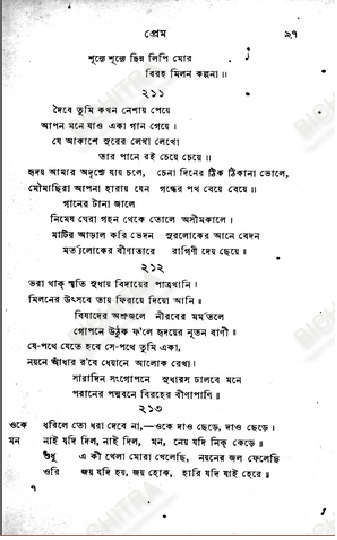 প্রেম ৯৭
শূন্যে শূন্যে ছিন্ন লিপি মোর
বিরহ মিলন কল্পনা॥
২১১
দৈবে তুমি কখন নেশায় পেয়ে
আপন মনে যাও একা গান গেয়ে।
যে আকাশে সুরের লেখা লেখো
তার পানে রই চেয়ে চেয়ে॥
হৃদয় আমার অদৃশ্যে যায় চলে, চেনা দিনের ঠিক ঠিকানা ভোলে,
মৌমাছিরা আপনা হারায় যেন গন্ধের পথ বেয়ে বেয়ে॥
গানের টানা জালে
নিমেষ ঘেরা গহন থেকে তোলে অসীমকালে।
মাটির আড়াল করি ভেদন সুরলোকের আনে বেদন
মর্ত্যলোকের বীণাতারে রাগিণী দেয় ছেয়ে॥
২১২
ভরা থাক্ স্মৃতি সুধায় বিদায়ের পাত্রখানি।
মিলনের উৎসবে তায় ফিরায়ে দিয়ো আনি॥
বিষাদের অশ্রুজলে নীরবের মর্মতলে
গোপনে উঠুক ফ'লে হৃদয়ের নূতন বাণী॥
যে-পথে যেতে হবে সে-পথে তুমি একা,
নয়নে আঁধার র'বে ধেয়ানে আলোক রেখা।
সারাদিন সংগোপনে সুধারস ঢালবে মনে
পরানের পদ্মবনে বিরহের বীণাপাণি॥
২১৩
ওকে ধরিলে তো ধরা দেবে না,—ওকে দাও ছেড়ে, দাও ছেড়ে।
মন নাই যদি দিল, নাই দিল, মন, নেয় যদি নিক্ কেড়ে॥
শুধু এ কী খেলা মোরা খেলেছি, নয়নের জল ফেলেছি
ওরি জয় যদি হয়, জয় হোক, হারি যদি যাই হেরে॥
৭